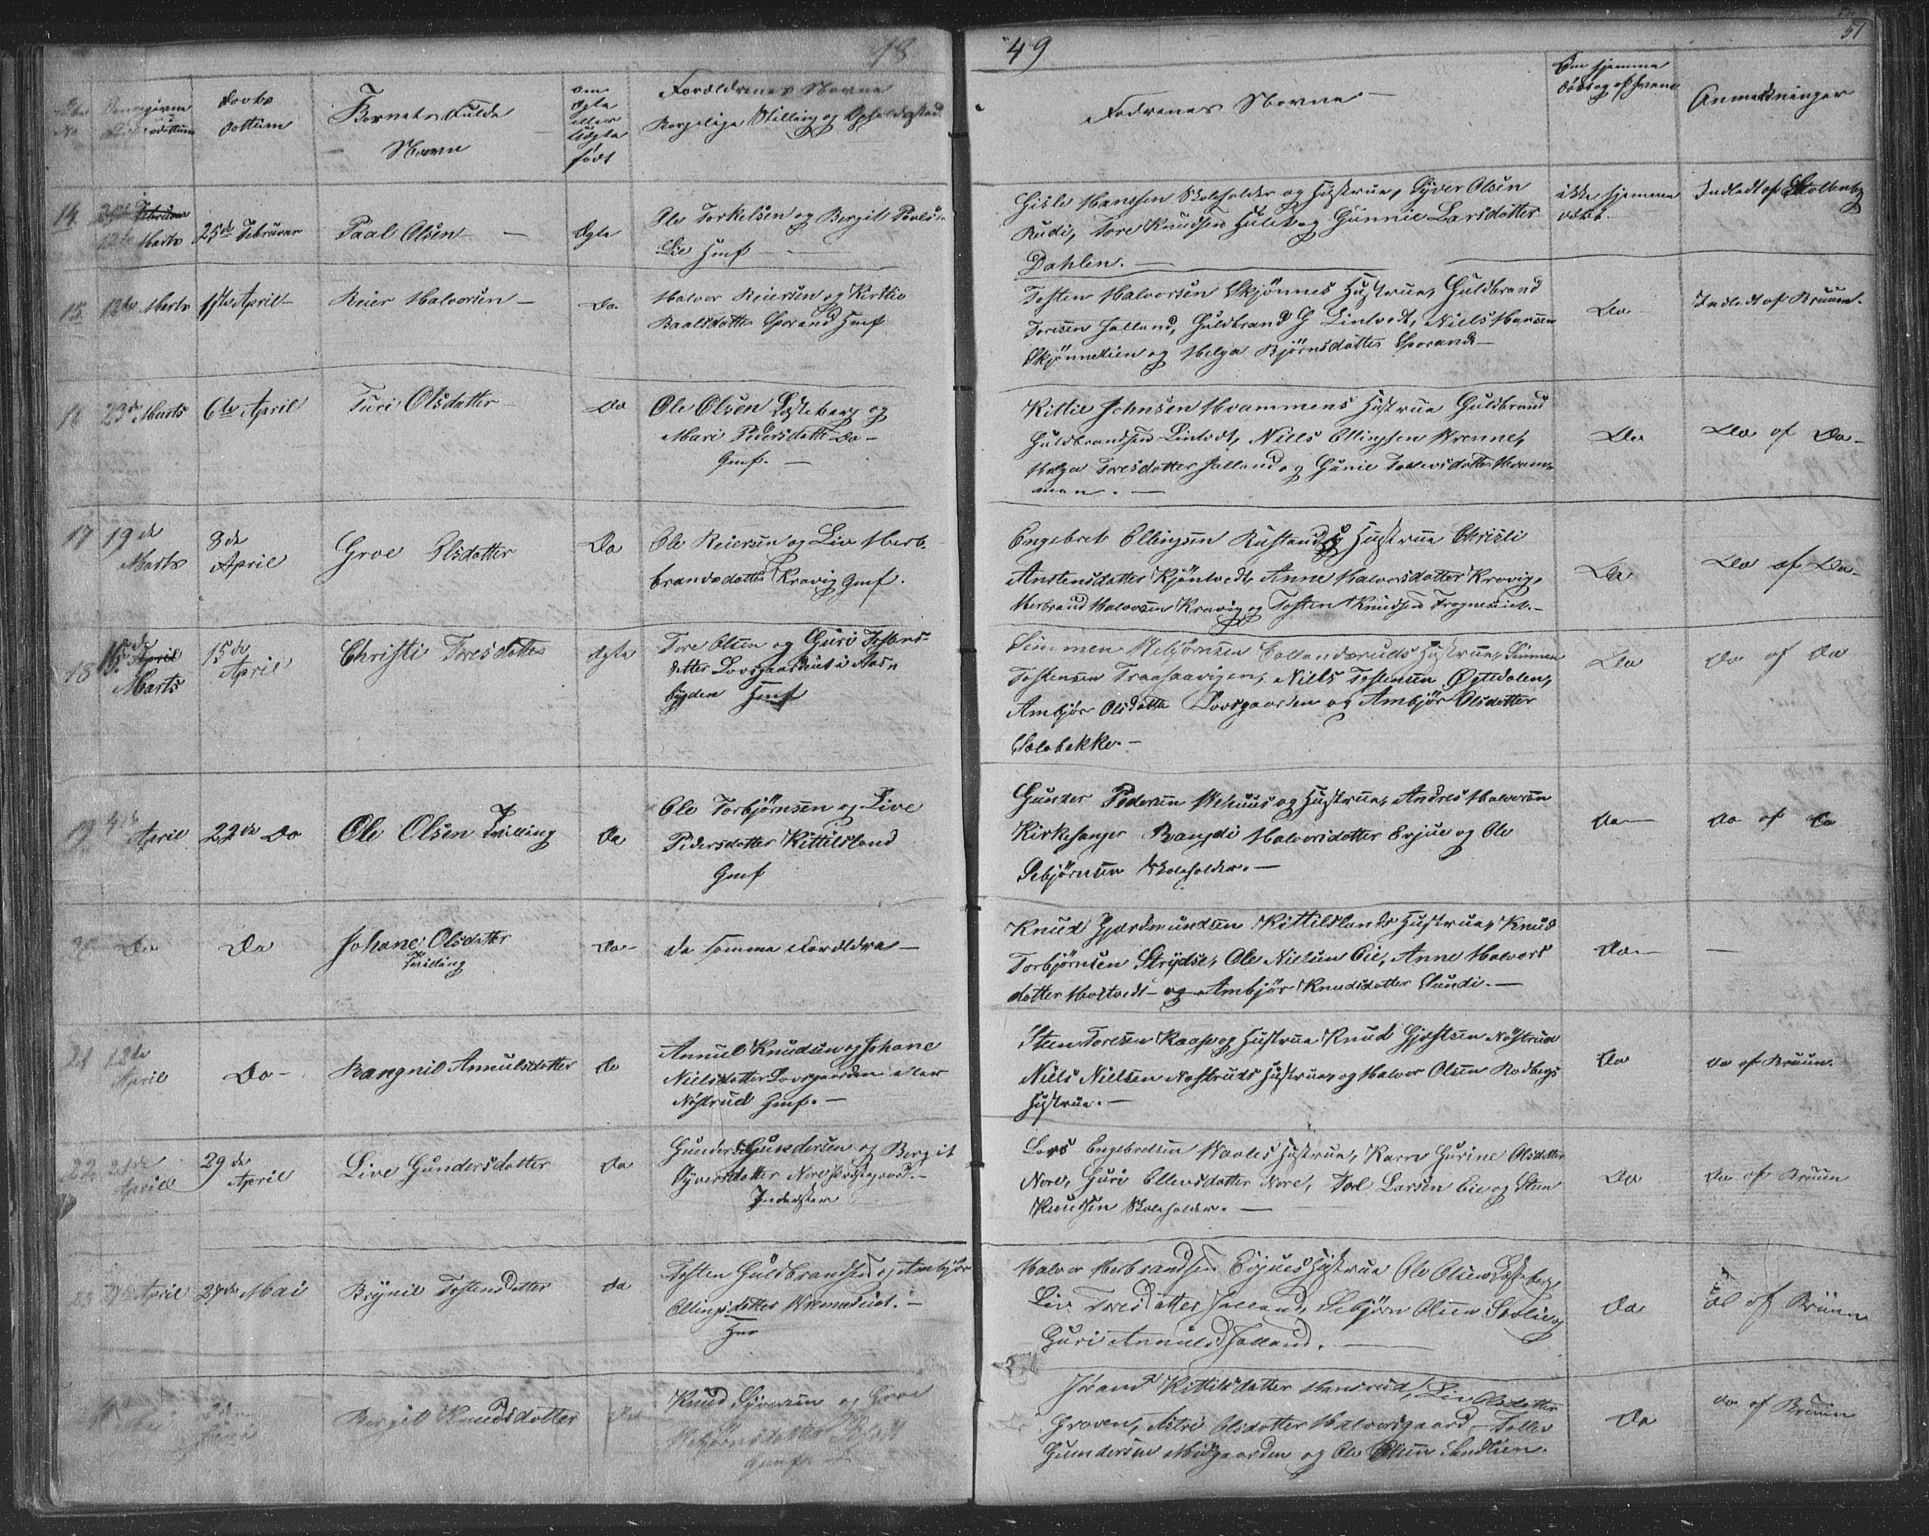 48
49
51
Døbs
Dattum
Barnets Fulde
Navn
om
Ægte
eller
Uægte
født
Forældrenes Navne
Borgelige Stilling og Opholdsted
Fadrenes Navne
Om hjemme
døbt og af hvem
Anmærkninger
14
12te Marts
25de Februar
Paal Olsen
Ægte
Ole Torkelsen og Bergit Paals
Lie Hmf
Gisle Hanssen Skoleholder og Hustrue, Syver Olsen
Rudi, Tore Knudsen Hulet og Gunnil Larsdatter
Dahlen.
ikke hjemme
døbt.
Indledt af Stoltenbg
15
12te Marts
1ste April
Reier Halvorsen
Do
Halvor Reiersen og Kirstie
Baalsdatter Sporand Hmf
Tosten Halvorsen Skjønnes Hustrue, Guldbrand
Toresen Jalland, Guldbrand G Lintvedt, Niels Hansen
Skjønnelien og Helga Bjørnsdatter Sporand
Do
Indledt af Bruun.
16
23de Marts
6te April
Turi Olsdatter
Do
Ole Olsen Liseberg og
Mari Pedersdatter Do
Gmf.
Kittil Johnsen Hvammens Hustrue Guldbrand
Guldbrandsen Lintvedt, Niels Ellingsen Wrenne,
Helga Toresdatter Jalland og Gunil Tollevsdatter Hvam-
men.
Do
Do af Do
17
19de
Marts
8de
April
Groe Olsdatter
Do
Ole Reiersen og Liv Herb-
brandsdatter Kravig Gmf.
Engebret Ellingsen Rustands Hustrue Christi
Anstensdatter Kjøntvedt, Anne Halvorsdatter Kravig,
Herbrand Halvorsen Kravig og Tosten Knudsen Frogneeiet.
Do
Do af Do
18
15de April
Marts
15de
April
Christi Toresdatter
Ægte
Tore Olsen og Guri Tostens-
datter Lovsgaardeiet i Aas-
bygden Hmf
Simmen Webjørnsen Hustrue, Simen
Tostensen Traaenvigen, Niels Tostensen Øgtedalen,
Ambjør Olsdatter Lovsgaarden og Ambjør Olsdatter
Solebekke.
Do
Do af Do
19
9de
April
22de Do
Ole Olsen Tvilling
Do
Ole Torbjørnsen og Live
Pedersdatter Kittilsland
Gmf
Gunder Pedersen Wehuus og Hustrue, Andres Halvorsen
Kirkesanger Rangdi Halvorsdatter Evjue og Ole
Sebjørnsen Skoleholder.
Do
do af do
20
Do
Do
Johane Olsdatter
Tvilling
Do
de samme Forældre
Knud Gjermundsen Kittilslands Hustrue, Knud
Torbjørnsen Strydse, Ole Nielsen Eie, Anne Halvors
datter Hostvedt og Ambjør Knudsdatter Sundi.
Do
21
12te
April
Do
Rangnil Annulsdatter
do
Annul Knudsen og Johane
Nielsdatter Lovsgaarden eller
Nøstrud Gmf.
Sten Toresen Kaase og Hustrue Knud Gjestsen Nøstrud
Niels Nielsen Nøstruds Hustrue, og Halvor Olsen Rodbergs
Hustrue.
Do
do af Bruun.
22
21de
April
29de
April
Live Gundersdatter
Do
Gunder Gundersen og Bergit
Syversdatter Nore Prestegaard.
Inderster
Lars Engebretsen Waales Hustrue, Karn Gurine Olsdatter
Nore, Guri Ellevsdatter Nore, Torl Larsen Eie og Sten
Knudsen Skoleholder.
Do
do af Bruun
23
April
27de Mai
Brynil Tostensdatter
Do
Tosten Guldbrandsen og Ambjør
Ellingsdatter Wrenneeiet.
Hmf
Halvor Herbrandsen Evjues Hustrue Ole Olsen Liseberg,
Liv Toresdatter Jalland, Sebjørn Olsen Skolie og
Guri Annulsd Jalland.
Do
do af Bruun
Bergit Knudsdatter
Do
Knud Syversen og Groe
Webjørnsdatter
Gmf
Jørand Kittilsdatter Hansrud, Liv Olsdatter
Groven, Astri Olsdatter Halvorsgaard, Tollev
Gundersen Midgaarden og Ole Olsen Sandlien.
Do
do af Bruun